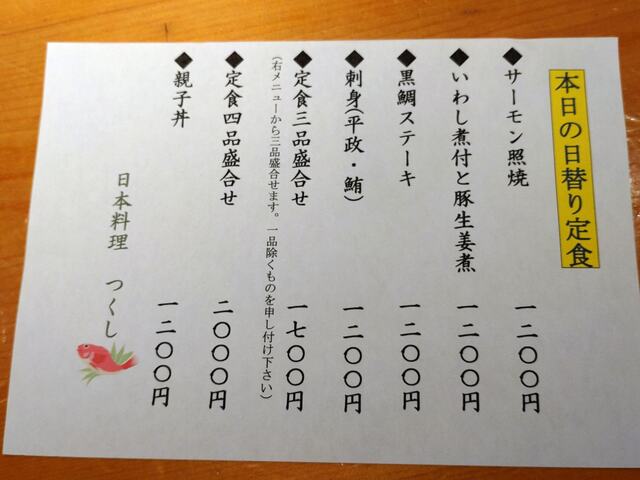 本日の日替り定食
◆サーモン照焼 一二〇〇円
◆いわし煮付と豚生姜煮 一二〇〇円
◆黒鯛ステーキ 一二〇〇円
◆刺身(平政・鮪) 一二〇〇円
◆定食三品盛合せ 一七〇〇円
(右メニューから三品盛合せます。一品除くものを申し付け下さい)
◆定食四品盛合せ 二〇〇〇円
◆親子丼 一二〇〇円
日本料理 つくし